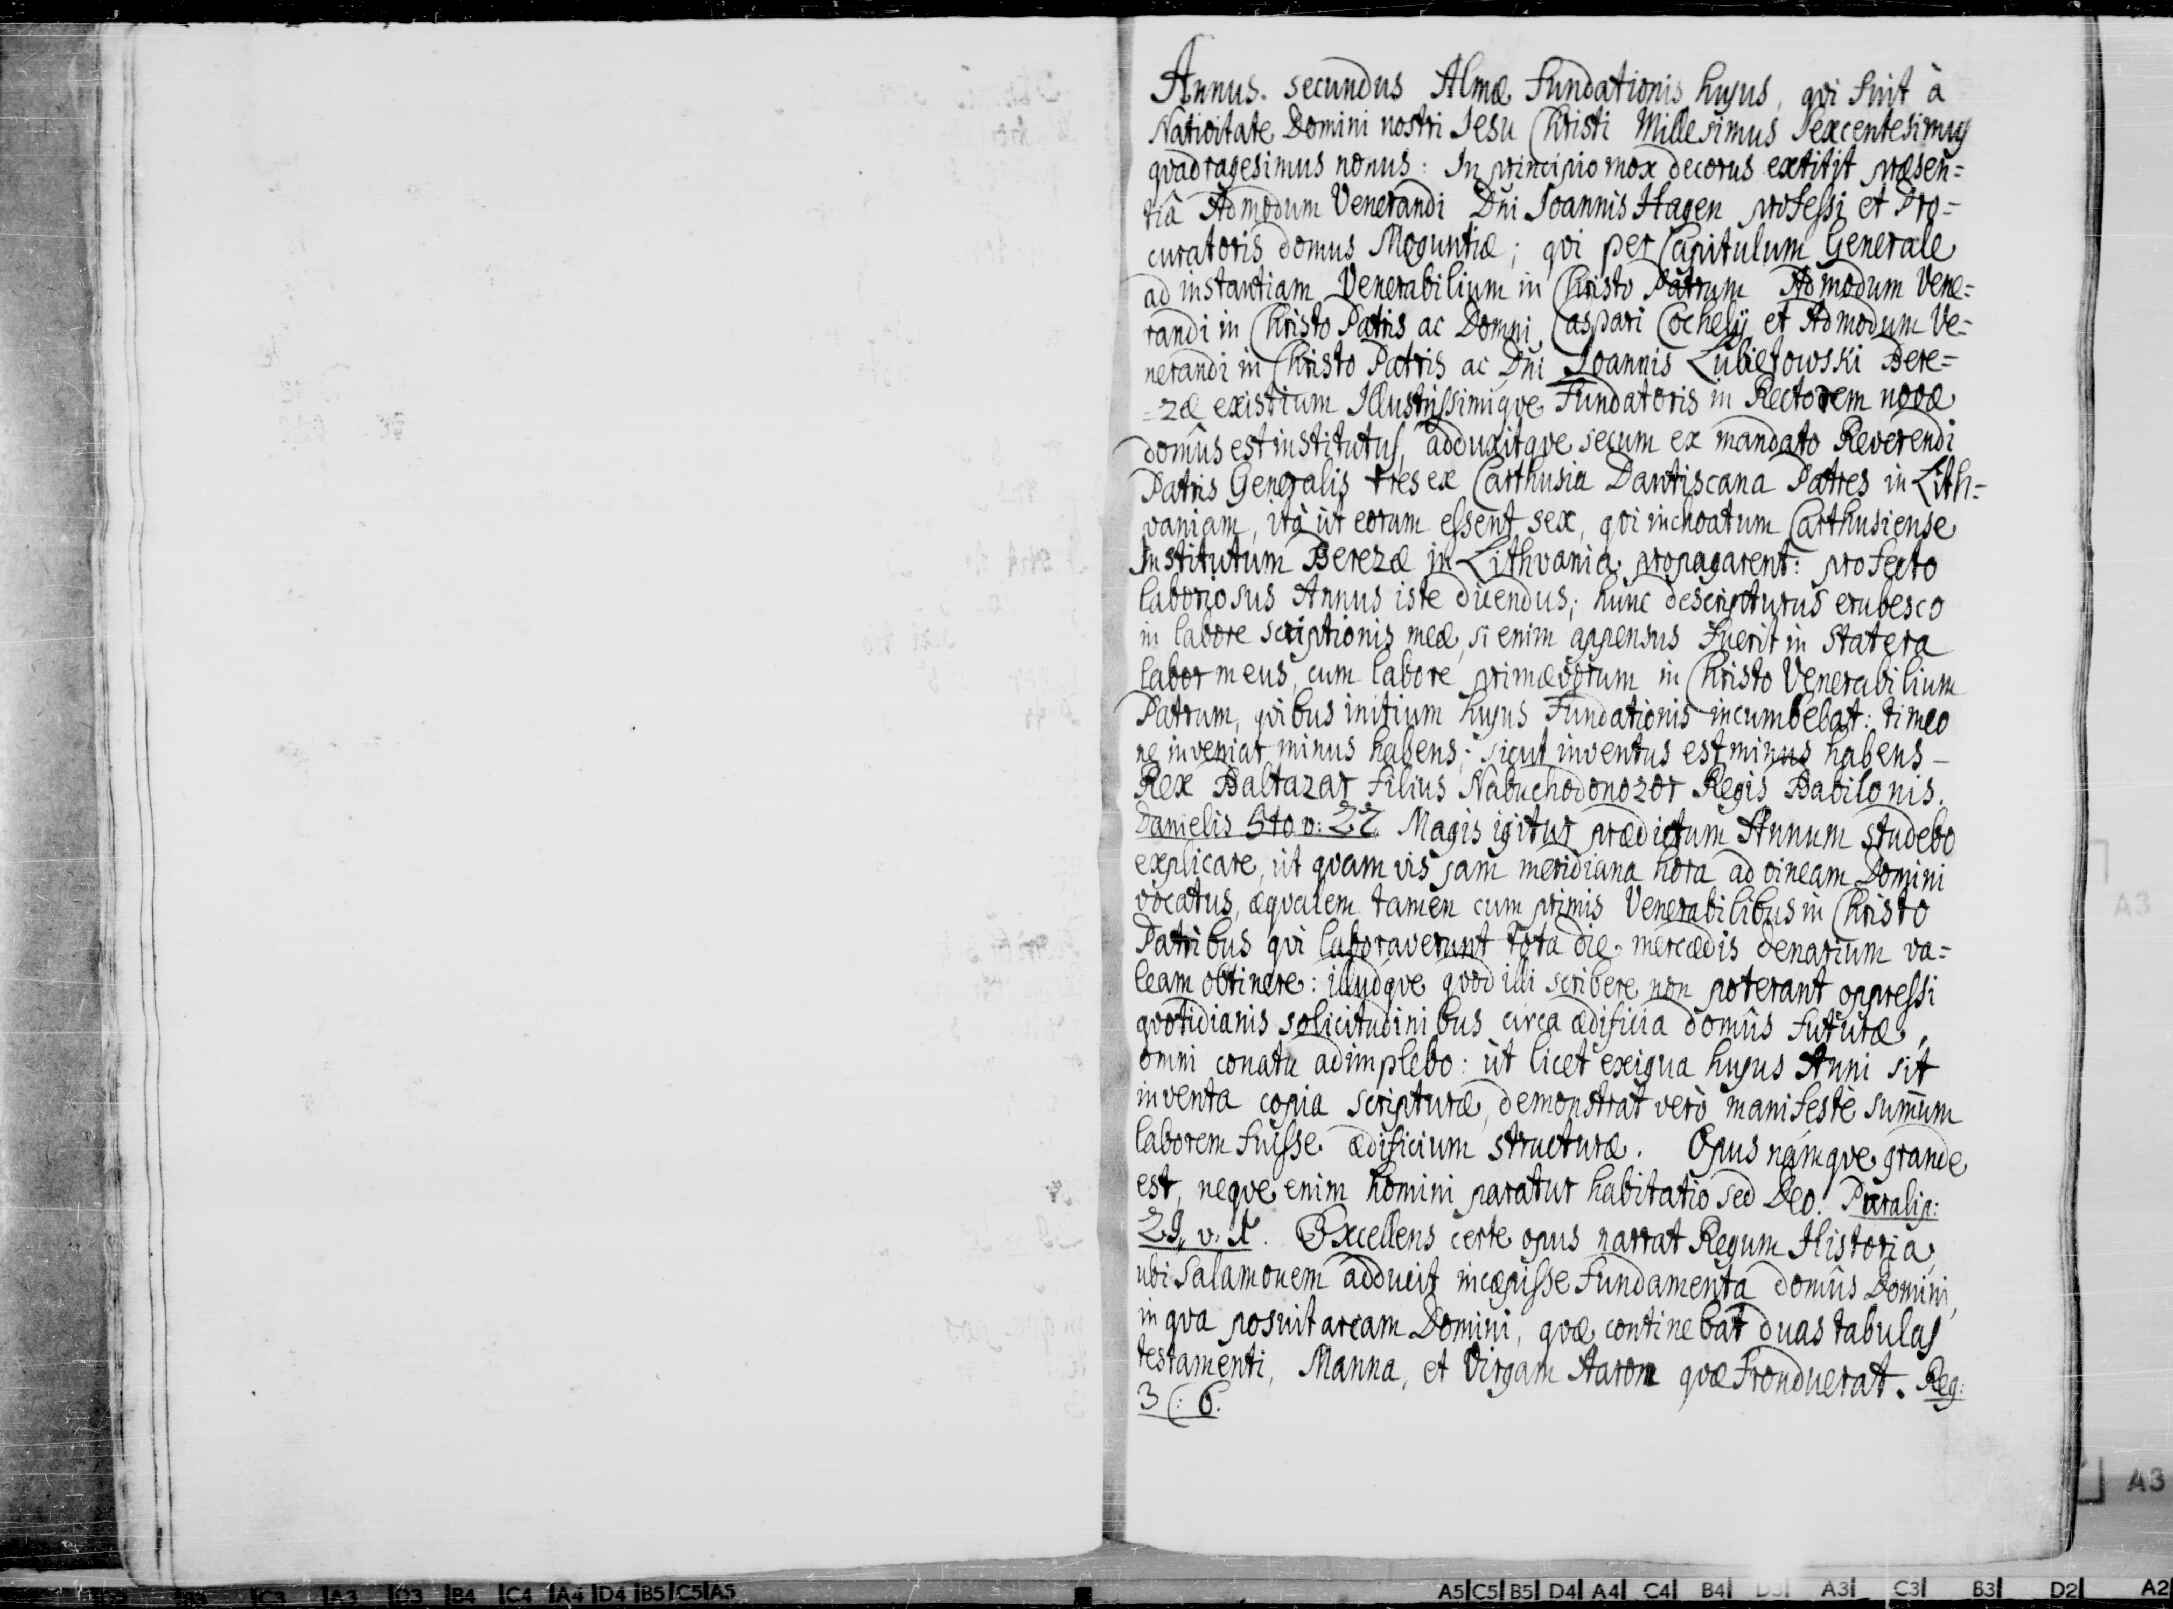 Annus. secundus Almæ Fundationis hujus, qvi fuit à
Nativitate Domini nostri Jesu Christi Millesimus Sexcentesimus
qvadragesimus nonus: In principio mox decorus extitit præsen=
tiâ Admodum Venerandi Dni Joannis Hagen professi et Pro=
curatoris domus Moguntiæ; qvi per Capitulum Generale
ad instantiam Venerabilium in Christo Patrum Admodum Vene=
randi in Christo Patris ac Domni Caspari Cochelij et Admodum Ve=
nerandi in Christo Patris ac Dni Joannis Lubietowski Bere=
=zæ existium Illustrissimiqve Fundatoris in Rectorem novæ
domûs est institutus, adduxitqve secum ex mandato Reverendi
Patris Generalis tres ex Carthusia Dantiscana Patres in Lith=
vaniam, ità ùt eorum essent sex, qvi inchoatum Carthusiense
Institutum Berezæ in Lithvania propagarent: profecto
laboriosus Annus iste dicendus; hunc descripturus erubesco
in labore scriptionis meæ, si enim appensus fuerit in statera
labor meus, cum labore primævorum in Christo Venerabilium
Patrum, qvibus initium hujus Fundationis incumbebat: timeo
ne inveniar minus habens; sicut inventus est minus habens –
Rex Baltazar Filius Nabuchodonozor Regis Babilonis.
Danielis 5to v: 27. Magis igitur prædictum Annum studebo
explicare, ùt qvam vis jam meridiana hora ad vineam Domini
vocatus, æqvalem tamen cum primis Venerabilibus in Christo
Patribus qvi laboraverunt tota die mercædis denarium va=
leam obtinere: illudqve qvod illi scribere non poterant oppressi
qvotidianis solicitudinibus circa ædificia domûs futuræ,
omni conatu adimplebo: ùt licet exigua hujus Anni sit
inventa copia scripturæ, demonstrat verò manifestè sumūm
laborem fuisse ædificium structuræ. Opus námqve grande
est, neqve enim homini paratur habitatio sed Deo. Paralip:
29. v. 1. Excellens certe opus narrat Regum Historia,
ubi Salamonem adducit incæpisse fundamenta domûs Domini,
in qva posuit arcam Domini, qvæ continebat duas tabulas
testamenti, Manna, et Virgam Aaron qvæ fronduerat. Reg:
3 C: 6.
A3
A3
C3 A3 D3 B4 C4 A4 D4 B5 C5 A5
A5 C5 B5 D4 A4 C4 B4 D3 A3 C3 B3 D2 A2